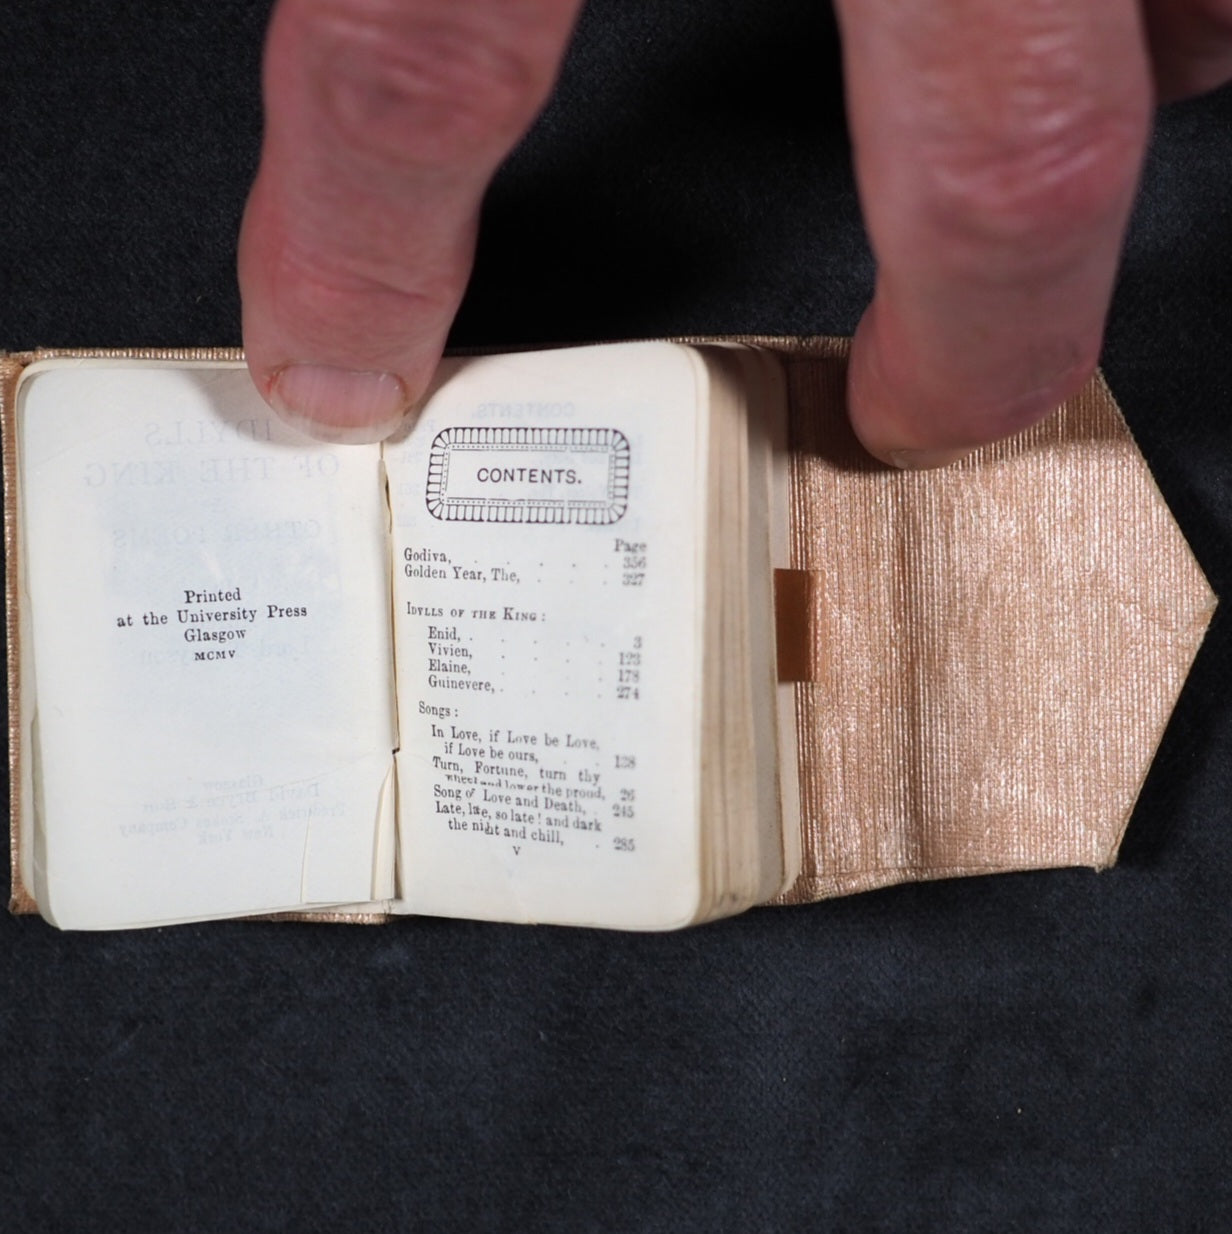 Printed
at the University Press
Glasgow
MCMV
CONTENTS.
Page
Godiva, . . . . 356
Golden Year, The, . . . 327
IDYLLS OF THE KING:
Enid, . . . . . 3
Vivien, . . . . 123
Elaine, . . . . 178
Guinevere, . . . . 274
Songs:
In Love, if Love be Love,
if Love be ours, . . 128
Turn, Fortune, turn thy
wheel and lower the proud, 26
Song of Love and Death, . 245
Late, late, so late! and dark
the night and chill, . 285
v